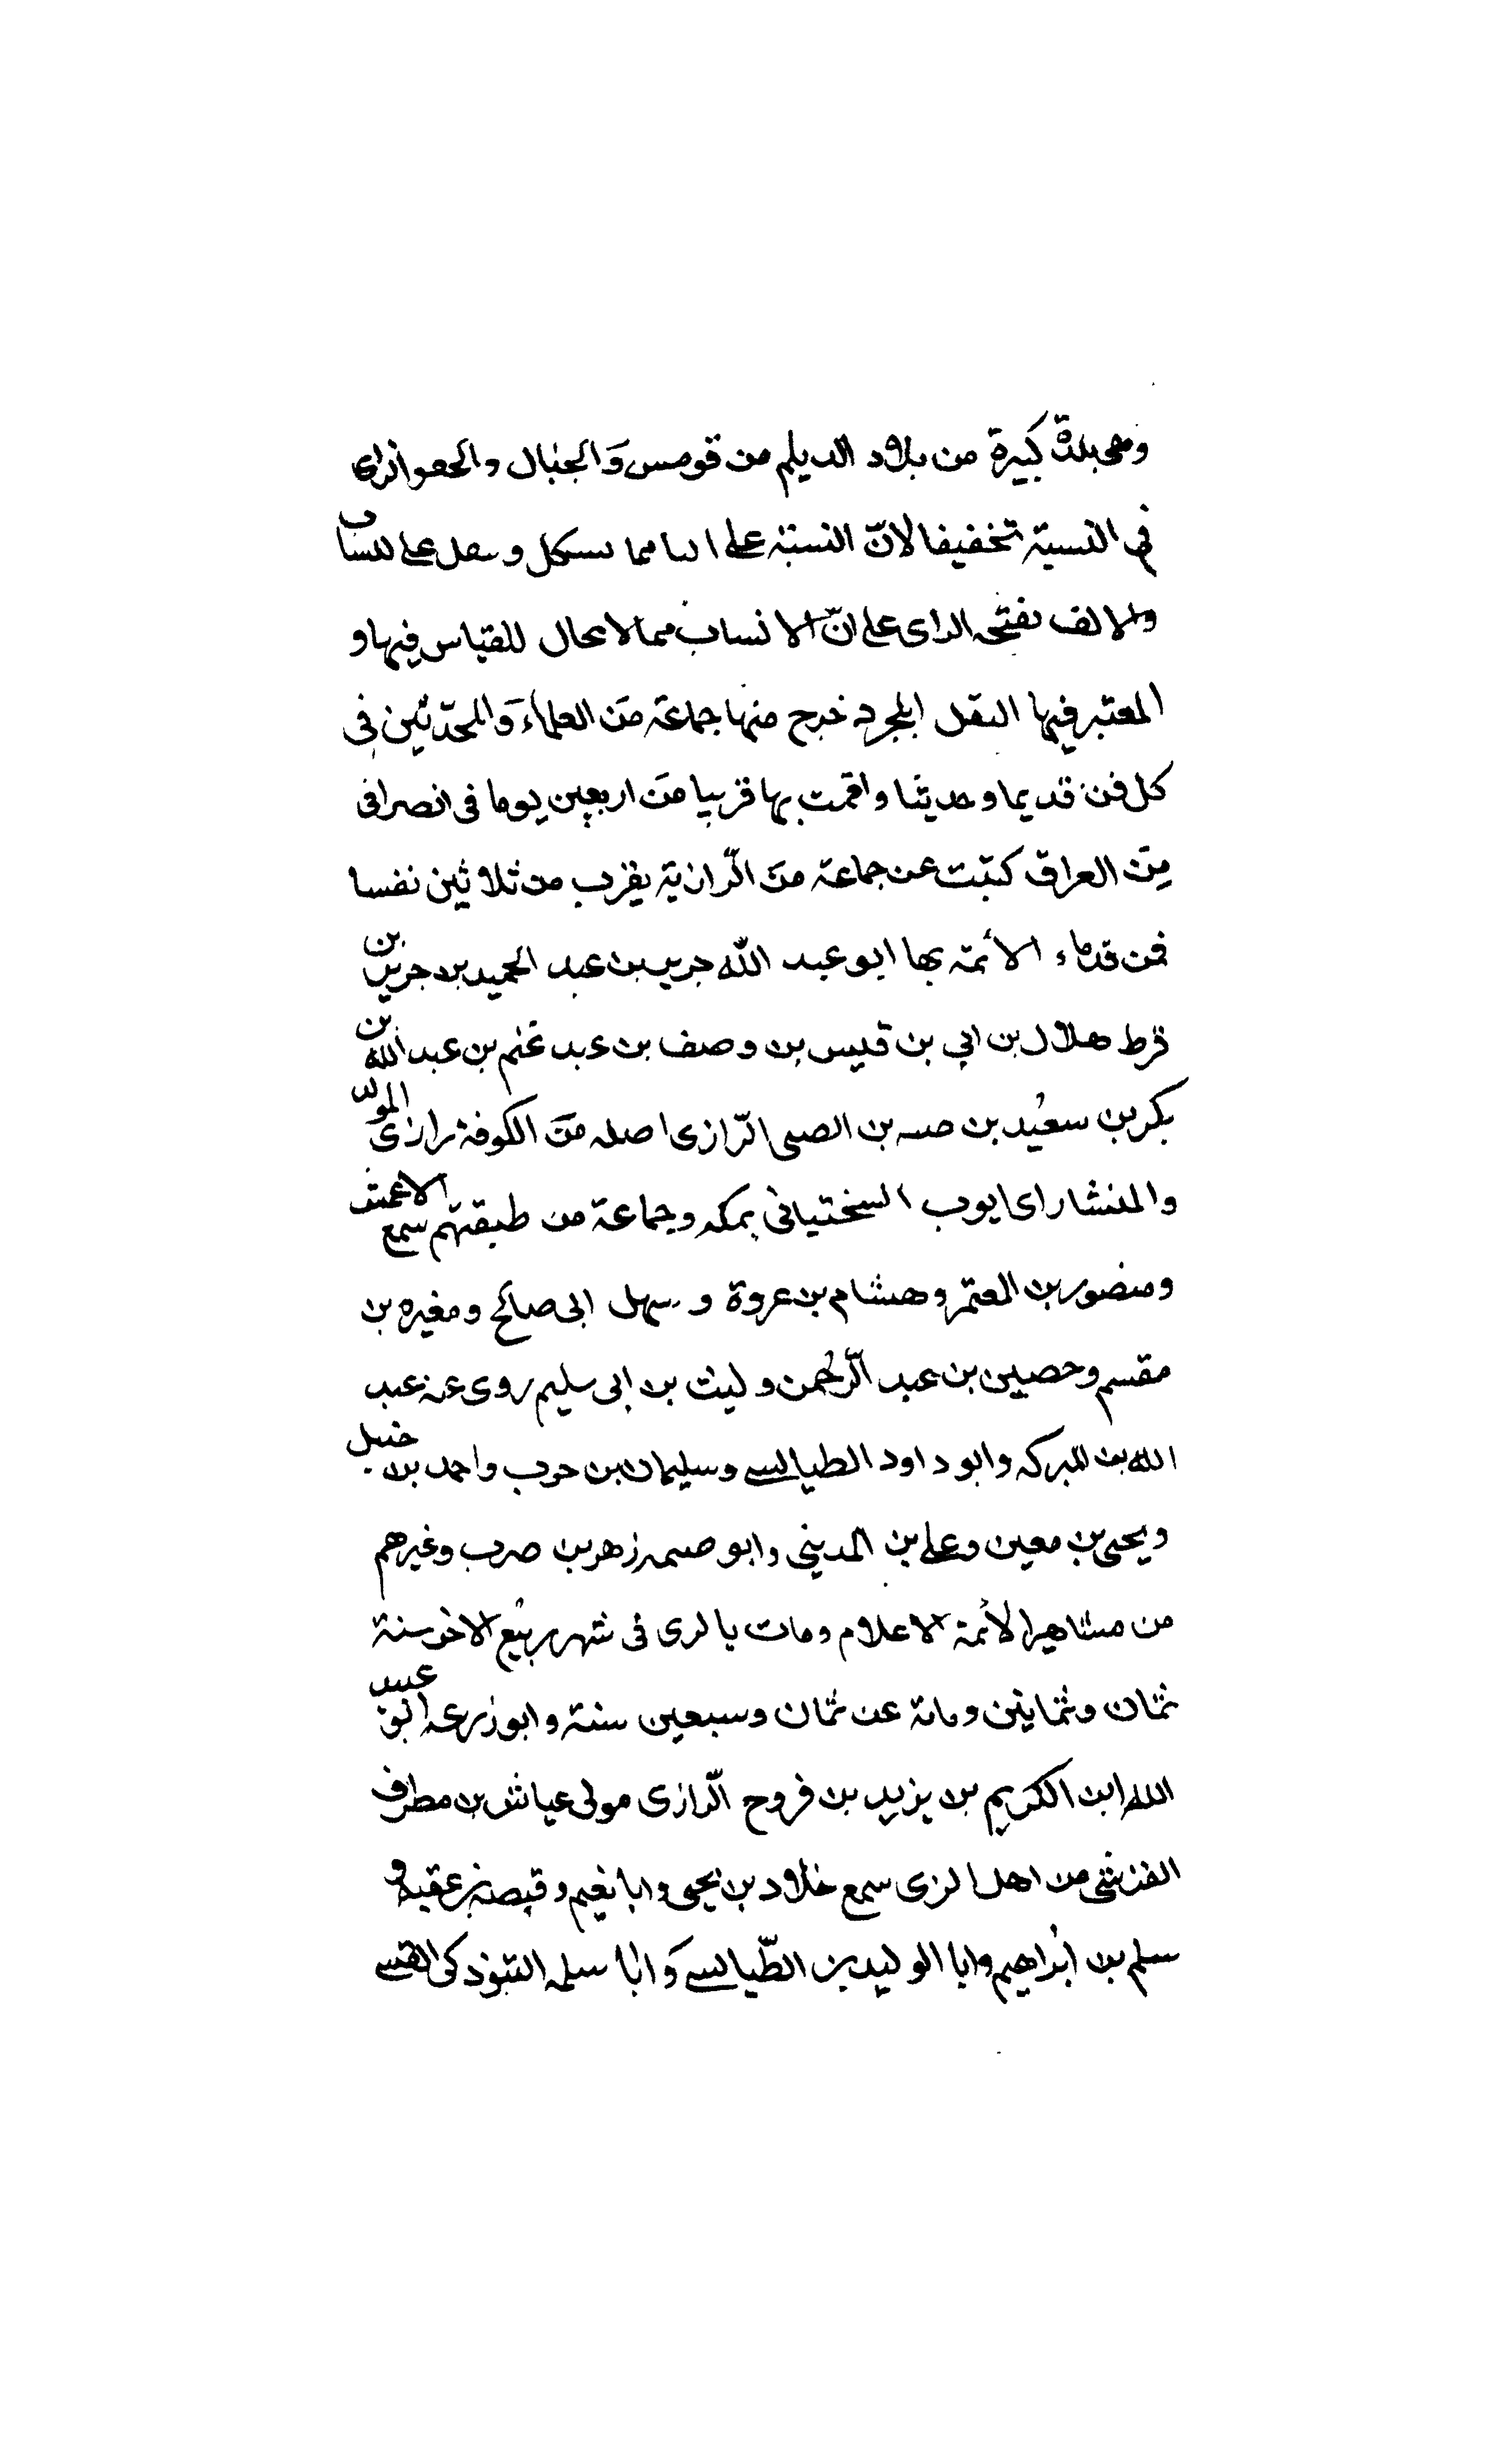 وهى بلدة كبيرة من بلاد الديلم من قومس وَالجبال والحقوا الزاى
فى النسبة تخفيفا لانّ النسبة على اليا مما يشكل ويثقل على اللسان
والالف بفتحه الراى على انّ الانساب مما لا مجال للقياس فيها و
المعتبر فيها النقل المجرد خرج منها جماعة مَن العلماءَ وَالمحدّثين فى
كل فن قديما وحديثا واقمت بها قريبا مَن اربعين يوما فى انصرافى
مِن العراق كتبت عن جماعة مَن الرّازية يقرب من ثلاثين نفسا
فمن قدماء الأئمة بها ابو عبد اللّه جرير بن عبد الحميد بن جرير بن
قرط هلال بن ابي بن قيس بن وصف بن عبد غنم بن عبد الله بن
بكر بن سعيد بن صبه بن الصبى الرّازى اصله مَن الكوفة رازى المولد
والمنشا راى ايوب السختيانى بمكه وجماعة من طبقتهم سمع الاعمش
ومنصور بن المعتمر وهشام بن عروة وسهل ابى صالح ومغيره بن
مقسم وحصين بن عبد الرّحمن وليث بن ابى سليم روى عنه عبد
الله بن المبركه وابو داود الطيالسى وسليمان بن حرب واحمد بن حنبل
ويحيى بن معين وعلى بن المدينى وابو خيثمه زهر بن صرب وغيرهم
من مشاهير الأئمة الاعلام ومات بالرى فى شهر ربيع الاخر سنة
ثمان وثمانين ومائة عن ثمان وسبعين سنة وابو زرعه عبيد
الله ابن الكريم بن يزيد بن فروح الرّازى مولى عياش بن مطرف
القرشى من اهل الرى سمع خلاد بن يحيى وابا نعيم وقبيصه بن عقبه و
سلم بن ابراهيم وابا الوليد بن الطّيالسى وَابا سلمه التبوذكى القسى